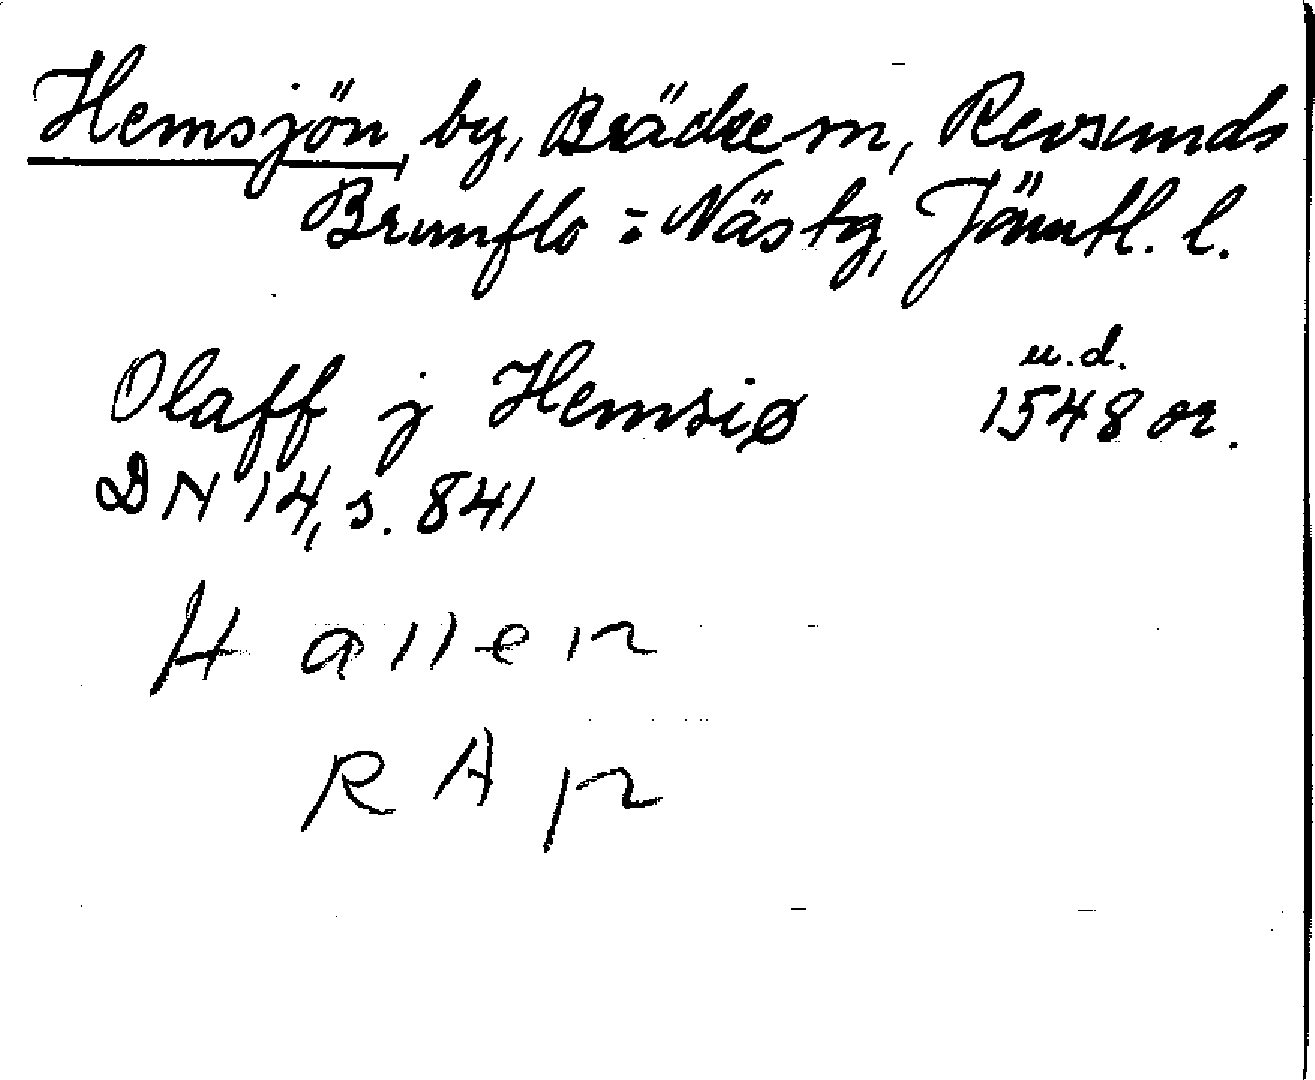 Hemsjön, by, Bräcke sn, Revsunds
Brunflo = Nästg, Jämtl. l.
u.d.
Olaff j Hemsiø 1548 or.
DN 14, s. 841
Hallen
RAp